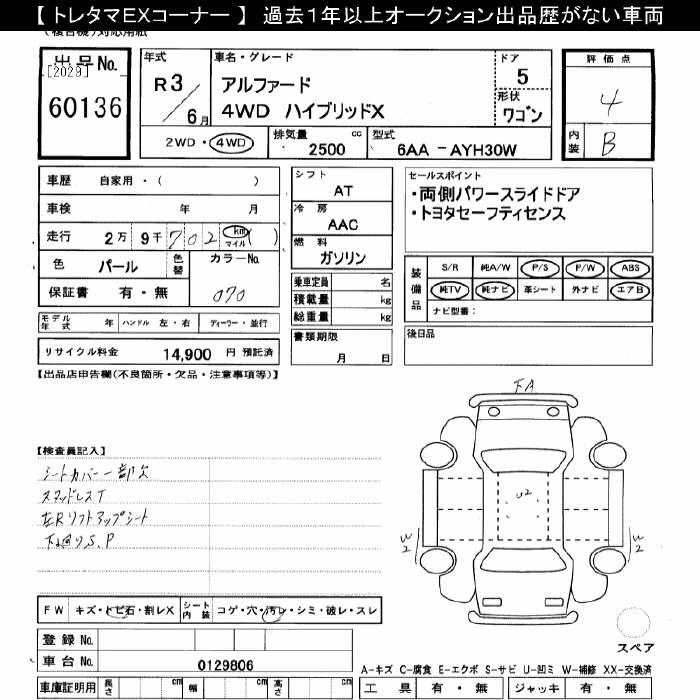 【 トレタマEXコーナー 】 過去1年以上オークション出品歴がない車両
(複合機)対応用紙
出品No.
[2029]
60136
年式
R3/6月
車名・グレード
アルファード
4WD ハイブリッドX
ドア
5
形状
ワゴン
2WD・4WD
排気量
2500 cc
型式
6AA -AYH30W
評価点
4
内装
B
車歴 自家用・( )
車検 年 月
走行 2万 9千702 km マイル ( )
色 パール 色替
カラーNo.
070
保証書 有・無
モデル年式 年 ハンドル 左・右 ディーラー・並行
リサイクル料金 14,900 円 預託済
シフト
AT
冷房
AAC
燃料
ガソリン
乗車定員 名
積載量 kg
総重量 kg
書類期限
月 日
セールスポイント
・両側パワースライドドア
・トヨタセーフティセンス
装備品
S/R 純A/W P/S P/W ABS
純TV 純ナビ 革シート 外ナビ エアB
ナビ型番:
後日品
【出品店申告欄(不良箇所・欠品・注意事項等)】
【検査員記入】
シートカバー一部欠
スマッドレスT
左Rリフトアップシート
下廻りS.P
FA
U2
W2
W2
スペア
FW キズ・トビ石・割レX シート内装 コゲ・穴・汚レ・シミ・破レ・スレ
登録 No.
車台 No. 0129806
車庫証明用 長さ cm 幅 cm 高さ cm
A-キズ C-腐食 E-エクボ S-サビ U-凹ミ W-補修 XX-交換済
工具 有・無 ジャッキ 有・無